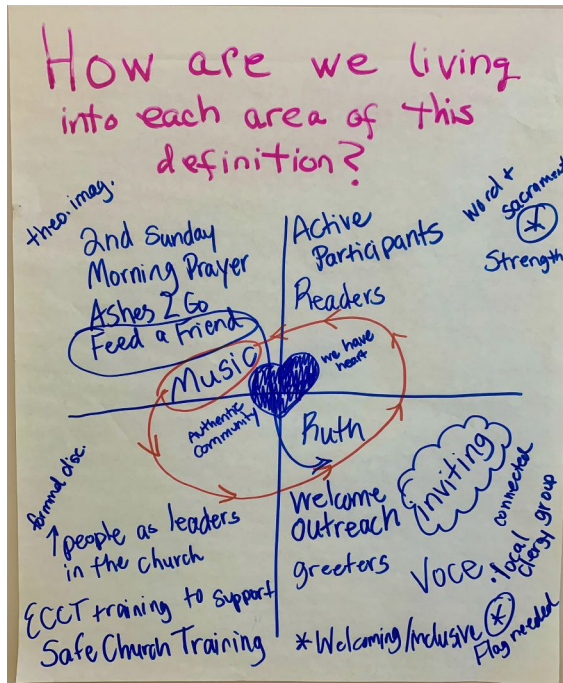 How are we living
into each area of this
definition?
theo. imag.
2nd Sunday
Morning Prayer
Ashes 2 Go
Feed a Friend
Music
Active
Participants
Readers
word +
sacrament
*
Strength
we have
heart
Authentic
community
Ruth
formed disc.
↑ people as leaders
in the church
ECCT training to support
Safe Church Training
Welcome
outreach
greeters
inviting
Voce
• local
clergy group
connected
* Welcoming/inclusive *
Flag needed